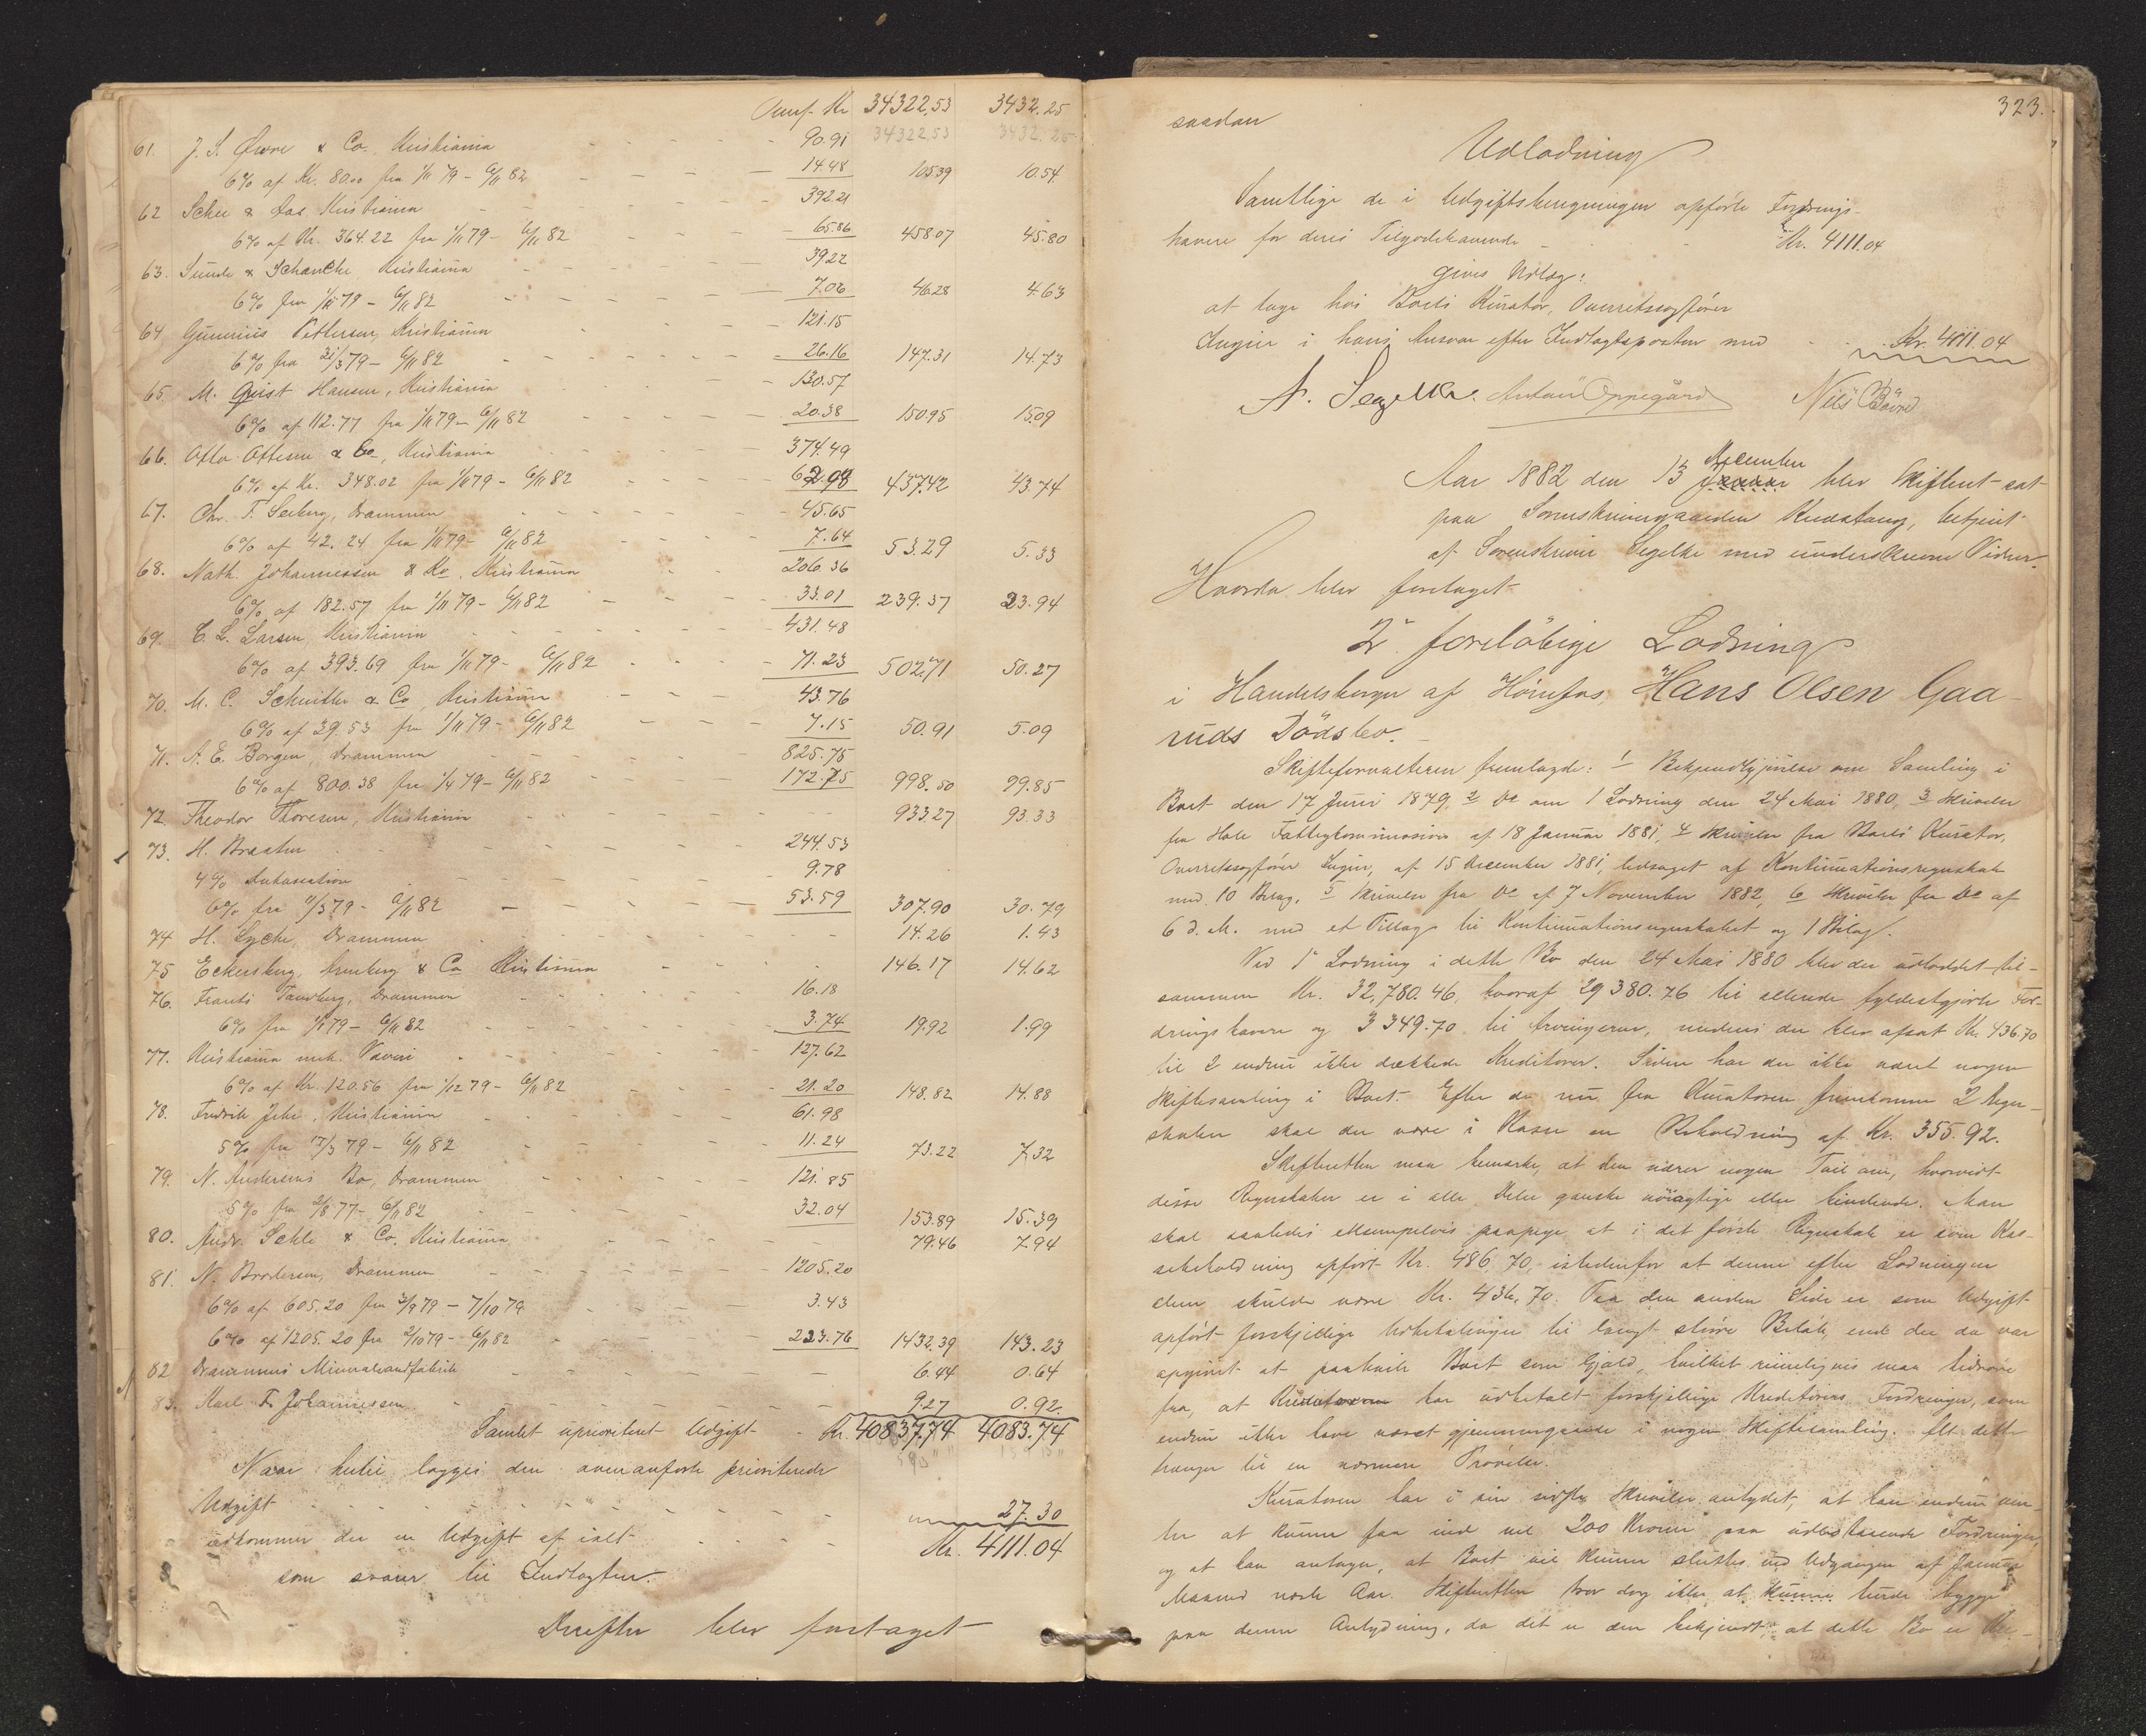 Kr 34322,53 3432.25
34322,53 3432.25
61. J. S. & Co. Kristiania - - - 90.91
6% af Kr. 80.00 fra 1/11 79 - 6/11 82 - - - - 14.48 105.39 10.54
62 & Kristiania - - - 392.21
6% af Kr. 364.22 fra 1/11 79 - 6/11 82 - - - - 65.86 458.07 45.80
63. Sunde & Schanche, Kristiania - - - 39.22
6% fra 1/11 79 - 6/11 82 - - - - 7.06 46.28 4.63
64 Gunerius Pettersen, Kristiania - - - 121.15
6% fra 31/3 79 - 6/11 82 - - - - 26.16 147.31 14.73
65. M. Hansen, Kristiania - - - 130.57
6% af 112.77 fra 1/11 79 - 6/11 82 - - - - 20.38 150.95 15.09
66. Otto Ottesen & Co, Kristiania - - - 374.49
6% af Kr. 348.02 fra 1/11 79 - 6/11 82 - - - - 62.98 437.42 43.74
67. Chr. F. Seeberg, Drammen - - - 45.65
6% af 42.24 fra 1/11 79 - 6/11 82 - - - - 7.64 53.29 5.33
68. Nath. Johannessen & Ko. Kristiania - - - 206.36
6% af 182.57 fra 1/11 79 - 6/11 82 - - - - 33.01 239.37 23.94
69. C. L. Larsen Kristiania - - - 431.48
6% af 393.69 fra 1/11 79 - 6/11 82 - - - - 71.23 502.71 50.27
70. M. C. & Co, Kristiania - - - 43.76
6% af 39.53 fra 1/11 79 - 6/11 82 - - - - 7.15 50.91 5.09
71. A. E. Borgen, Drammen - - - 825.75
6% af 800.38 fra 1/4 79 - 6/11 82 - - - - 172.75 998.50 99.85
72. Theodor Thoresen, Kristiania - - - 933.27 93.33
73. H. Braaten - - - 244.53
4% - - - 9.78
6% fra 11/3 79 - 6/11 82 - - - 53.59 307.90 30.79
74 H. Lyche, Drammen - - - 14.26 1.43
75 Eckersberg, & Co Kristiania - - - 146.17 14.62
76. Frants Tandberg, Drammen - - - 16.18
6% fra 1/1 79 - 6/11 82 - - - 3.74 19.92 1.99
77. Kristiania mek. Væveri - - - 127.62
6% af Kr. 120.56 fra 1/12 79 - 6/11 82 - - - 21.20 148.82 14.88
78. Fredrik , Kristiania - - - 61.98
5% fra 17/3 79 - 6/11 82 - - - 11.24 73.22 7.32
79. N. Andersens Bo, Drammen - - - 121.85
5% fra 2/8 77 - 6/11 82 - - - 32.04 153.89 15.39
80. Andr. Schle & Co. Kristiania - - - 79.46 7.94
81. N. Brodersen, Drammen - - - 1205.20
6% af 605.20 fra 3/9 79 - 7/10 79 - - - 3.43
6% af 1205.20 fra 7/10 79 - 6/11 82 - - - 223.76 1432.39 143.23
82 Drammens Mineralvandfabrik - - - 6.44 0.64
83. Karl F. Johannessen - - - 9.27 0.92.
Samlet uprioritert Udgift - Kr. 40837.74 4083.74
Naar hertil lægges den ovenanførte prioriterede
Udgift - - - 27.30
udkommer der en Udgift af ialt - - - Kr. 4111.04
som svarer til Indtægten.
Derefter blev foretaget
323.
saadan
Udlodning
Samtlige de i Udgiftsberegningen opførte Fordrings-
havere for deres Tilgodehavende - - - Kr. 4111.04
gives Udlæg:
at tage hos Boets Kurator, Overretssagfører
i hans Ansvar efter Indtægtsposten med - - Kr. 4111.04
A. Segelke. Anton Oppegård Nils
December
Aar 1882 den 13 Januar blev Skifteret sat
paa Sorenskrivergaarden , betjent
af Sorenskriver Segelke med underskrevne Vidner.
Hvorda blev foretaget
2n foreløbige Lodning
i Handelsborger af Hønefos, Hans Olsen Gaa-
ruds Dødsbo. -
Skifteforvalteren fremlagde: 1 Bekjendtgjørelse om Samling i
Boet den 17 Juni 1879, 2 Do om 1 Lodning den 24 Mai 1880, 3 Skrivelse
fra Hole Fattigkommission af 18 Januar 1881, 4 Skrivelse fra Boets Kurator,
Overretssagfører , af 15 December 1881, ledsaget af Kontinuationsregnskab
med 10 Bilag, 5 Skrivelse fra Do af 7 November 1882, 6 Skrivelse fra Do af
6 d. M. med et Tillæg til Kontinuationsregnskabet og 1 Bilag.
Ved 1e Lodning i dette Bo den 24 Mai 1880 blev der udloddet til-
sammen Kr. 32,780.46, hvoraf 29 380.76 til allerede fyldestgjorte For-
dringshavere og 3 349.70 til Arvingerne, medens der blev afsat Kr. 436.70
til 2 endnu ikke dækkede Kreditorer. Siden har der ikke været nogen
Skiftesamling i Boet. Efter de nu fra Kuratoren fremkomne 2 Regn-
skaber skal der være i Kasse en Beholdning af Kr. 355.92.
Skifteretten maa bemærke, at den nærer nogen Tvil om, hvorvidt
disse Regnskaber er i alle Dele ganske nøiagtige eller bindende. Man
skal saaledes exempelvis paapege at i det første Regnskab er som Kas-
sebeholdning opført Kr. 486.70 istedenfor at denne efter Lodningen
skulde være Kr. 436.70. Paa den anden Side er som Udgift
opført forskjellige Udbetalinger til langt større Beløb, end der da var
opgivet at paahvile Boet som Gjæld, hvilket rimeligvis maa hidrøre
fra, at Kuratoren har udbetalt forskjellige Kreditorers Fordringer, som
endnu ikke have været gjennemgaaede i nogen Skiftesamling. Alt dette
trænger til en nærmere Prøvelse.
Kuratoren har i sin sidste Skrivelse antydet, at han endnu ven-
ter at kunne faa ind vel 200 Kroner paa udestaaende Fordringer,
og at han antager, at Boet vil kunne sluttes ved Udgangen af Januar
Maaned næste Aar. Skifteretten tror dog ikke at kunne turde bygge
paa denne Antydning, da det er den bekjendt, at dette Bo er